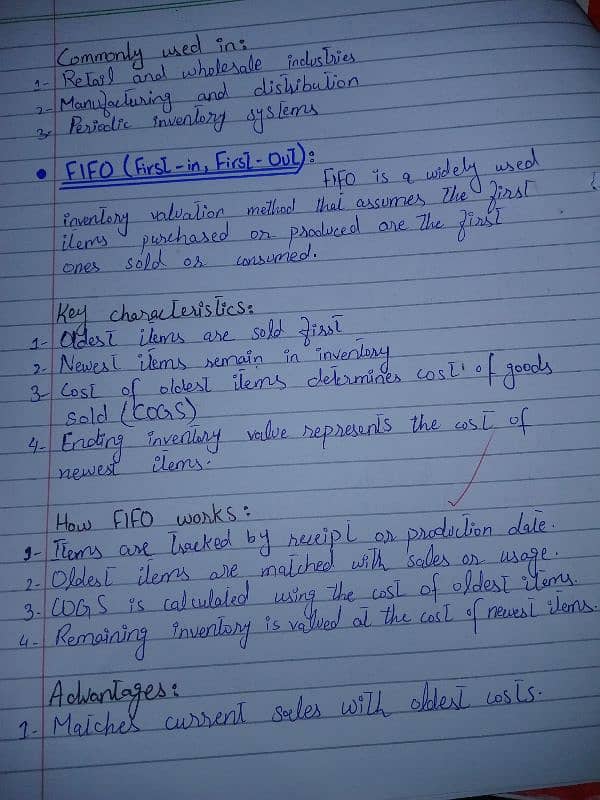 Commonly used in:
1- Retail and wholesale industries
2- Manufacturing and distribution
3- Periodic inventory systems
• FIFO (First-in, First-Out):
FIFO is a widely used
inventory valuation method that assumes the first
items purchased or produced are the first
ones sold or consumed.
Key characteristics:
1- Oldest items are sold first
2- Newest items remain in inventory
3- Cost of oldest items determines cost of goods
sold (COGS)
4- Ending inventory value represents the cost of
newest items.
How FIFO works:
1- Items are tracked by receipt or production date.
2- Oldest items are matched with sales or usage.
3- COGS is calculated using the cost of oldest items.
4- Remaining inventory is valued at the cost of newest items.
Advantages:
1- Matches current sales with oldest costs.